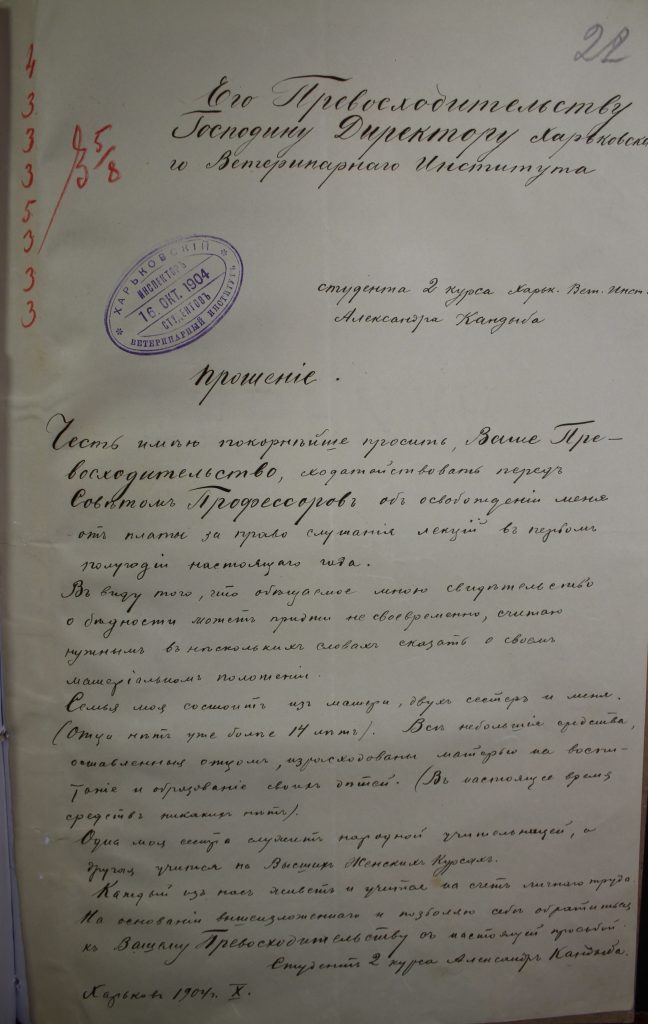 22
4
3
3
3
5
3
3
3
3 5/8
Его Превосходительству
Господину Директору Харьковска
го Ветеринарнаго Института
ХАРЬКОВСКІЙ
ИНСПЕКТОРЪ
16. ОКТ. 1904
СТУДЕНТОВЪ
ВЕТЕРИНАРНЫЙ ИНСТИТУТЪ
студента 2 курса Харьк. Вет. Инст.
Александра Кандыба
Прошеніе.
Честь имѣю покорнѣйше просить, Ваше Пре-
восходительство, ходатайствовать передъ
Совѣтомъ Профессоровъ объ освобожденіи меня
отъ платы за право слушанія лекцій въ первомъ
полугодіи настоящаго года.
Въ виду того, что обѣщаемое мною свидѣтельство
о бѣдности можетъ придти не своевременно, считаю
нужнымъ въ нѣсколькихъ словахъ сказать о своемъ
матеріальномъ положеніи.
Семья моя состоитъ изъ матери, двухъ сестеръ и меня.
(Отца нѣтъ уже болѣе 14 лѣтъ). Всѣ небольшія средства,
оставленныя отцомъ, израсходованы матерью на воспи-
таніе и образованіе своихъ дѣтей. (Въ настоящее время
средствъ никакихъ нѣтъ).
Одна моя сестра служитъ народной учительницей, а
другая учится на Высшихъ Женскихъ Курсахъ.
Каждый изъ насъ живетъ и учится на счетъ личнаго труда.
На основаніи вышеизложеннаго и позволяю себѣ обратиться
къ Вашему Превосходительству съ настоящей просьбой
Студентъ 2 курса Александръ Кандыба.
Харьковъ 1904 г. X.